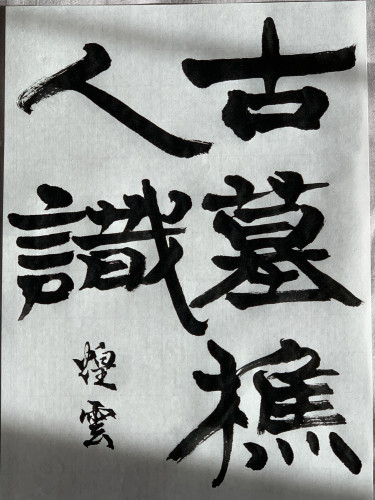 古墓樵
人識
煌雲